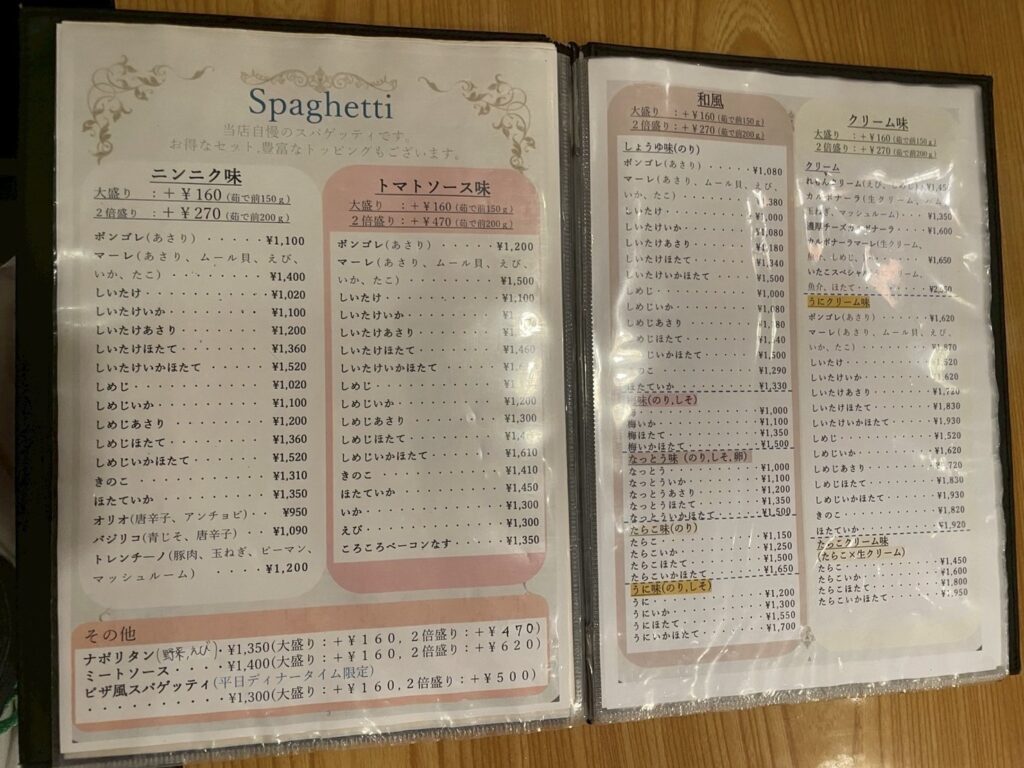 Spaghetti
当店自慢のスパゲッティです。
お得なセット,豊富なトッピングもございます。
ニンニク味
大盛り :＋￥160(茹で前150g)
2倍盛り :＋￥270(茹で前200g)
ボンゴレ(あさり) ・・・・・¥1,100
マーレ(あさり、ムール貝、えび、
いか、たこ) ・・・・・・・・¥1,400
しいたけ・・・・・・・・・・¥1,020
しいたけいか・・・・・・・・¥1,100
しいたけあさり・・・・・・・¥1,200
しいたけほたて・・・・・・・¥1,360
しいたけいかほたて・・・・・¥1,520
しめじ・・・・・・・・・・・¥1,020
しめじいか・・・・・・・・・¥1,100
しめじあさり・・・・・・・・¥1,200
しめじほたて・・・・・・・・¥1,360
しめじいかほたて・・・・・・¥1,520
きのこ・・・・・・・・・・・¥1,310
ほたていか・・・・・・・・・¥1,350
オリオ(唐辛子、アンチョビ)・・¥950
バジリコ(青じそ、唐辛子) ¥1,090
トレンチーノ(豚肉、玉ねぎ、ピーマン、
マッシュルーム) ・・・・¥1,200
トマトソース味
大盛り :＋￥160(茹で前150g)
2倍盛り :＋￥470(茹で前200g)
ボンゴレ(あさり) ・・・・¥1,200
マーレ(あさり、ムール貝、えび、
いか、たこ) ・・・・・・・¥1,500
しいたけ・・・・・・・・・¥1,100
しいたけいか・・・・・・・
しいたけあさり・・・・・・
しいたけほたて・・・・・・¥1,460
しいたけいかほたて・・・・
しめじ・・・・・・・・・・
しめじいか・・・・・・・・¥1,200
しめじあさり・・・・・・・¥1,300
しめじほたて・・・・・・・
しめじいかほたて・・・・・¥1,610
きのこ・・・・・・・・・・¥1,410
ほたていか・・・・・・・・¥1,450
いか・・・・・・・・・・・¥1,300
えび・・・・・・・・・・・¥1,300
ころころベーコンなす・・・¥1,350
その他
ナポリタン(野菜,えび)・¥1,350(大盛り:＋￥160,2倍盛り:＋￥470)
ミートソース・・・・¥1,400(大盛り:＋￥160,2倍盛り:＋￥620)
ピザ風スパゲッティ(平日ディナータイム限定)
・・・・・・・・・・¥1,300(大盛り:＋￥160,2倍盛り:＋￥500)
和風
大盛り :＋￥160(茹で前150g)
2倍盛り :＋￥270(茹で前200g)
しょうゆ味(のり)
ボンゴレ(あさり)・・・・・¥1,080
マーレ(あさり、ムール貝、えび、
いか、たこ)・・・・・・・
しいたけ・・・・・・・・・¥1,000
しいたけいか・・・・・・・¥1,080
しいたけあさり・・・・・・
しいたけほたて・・・・・・¥1,340
しいたけいかほたて・・・・¥1,500
しめじ・・・・・・・・・・¥1,000
しめじいか・・・・・・・・
しめじあさり・・・・・・・
ほたて・・・・・・・
いかほたて・・・・・・¥1,500
・・・・・・・・・・¥1,290
ほたていか・・・・・・・・¥1,330
味(のり,しそ)
・・・・・・・・・・・¥1,000
梅いか・・・・・・・・・・¥1,100
梅ほたて・・・・・・・・・¥1,350
梅いかほたて・・・・・・・¥1,500
なっとう味 (のり,しそ,卵)
なっとう・・・・・・・・・¥1,000
なっとういか・・・・・・・¥1,100
なっとうあさり・・・・・・¥1,200
なっとうほたて・・・・・・¥1,350
なっとういかほたて・・・・¥1,500
たらこ味(のり)
たらこ・・・・・・・・・・¥1,150
たらこいか・・・・・・・・¥1,250
たらこほたて・・・・・・・¥1,500
たらこいかほたて・・・・・¥1,650
うに味(のり,しそ)
うに・・・・・・・・・・・¥1,200
うにいか・・・・・・・・・¥1,300
うにほたて・・・・・・・・¥1,550
うにいかほたて・・・・・・¥1,700
クリーム味
大盛り :＋￥160(茹で前150g)
2倍盛り :＋￥270(茹で前200g)
クリーム
れもんクリーム(えび、しめじ)
カルボナーラ(生クリーム、
玉ねぎ、マッシュルーム)・・¥1,350
濃厚チーズカルボナーラ・・¥1,600
カルボナーラマーレ(生クリーム、
しめじ、・・・¥1,650
いたこスペシャル クリーム、
魚介、ほたて・・・・・・・
うにクリーム味
ボンゴレ(あさり)・・・・・¥1,620
マーレ(あさり、ムール貝、えび、
いか、たこ)・・・・・・・¥1,870
しいたけ・・・・・・・・・
しいたけいか・・・・・・・
しいたけあさり・・・・・・¥1,720
しいたけほたて・・・・・・¥1,830
しいたけいかほたて・・・・¥1,930
しめじ・・・・・・・・・・¥1,520
しめじいか・・・・・・・・¥1,620
しめじあさり・・・・・・・
しめじほたて・・・・・・・¥1,830
しめじいかほたて・・・・・¥1,930
きのこ・・・・・・・・・・¥1,820
ほたていか・・・・・・・・¥1,920
たらこクリーム味
(たらこ×生クリーム)
たらこ・・・・・・・・・・¥1,450
たらこいか・・・・・・・・¥1,600
たらこほたて・・・・・・・¥1,800
たらこいかほたて・・・・・¥1,950